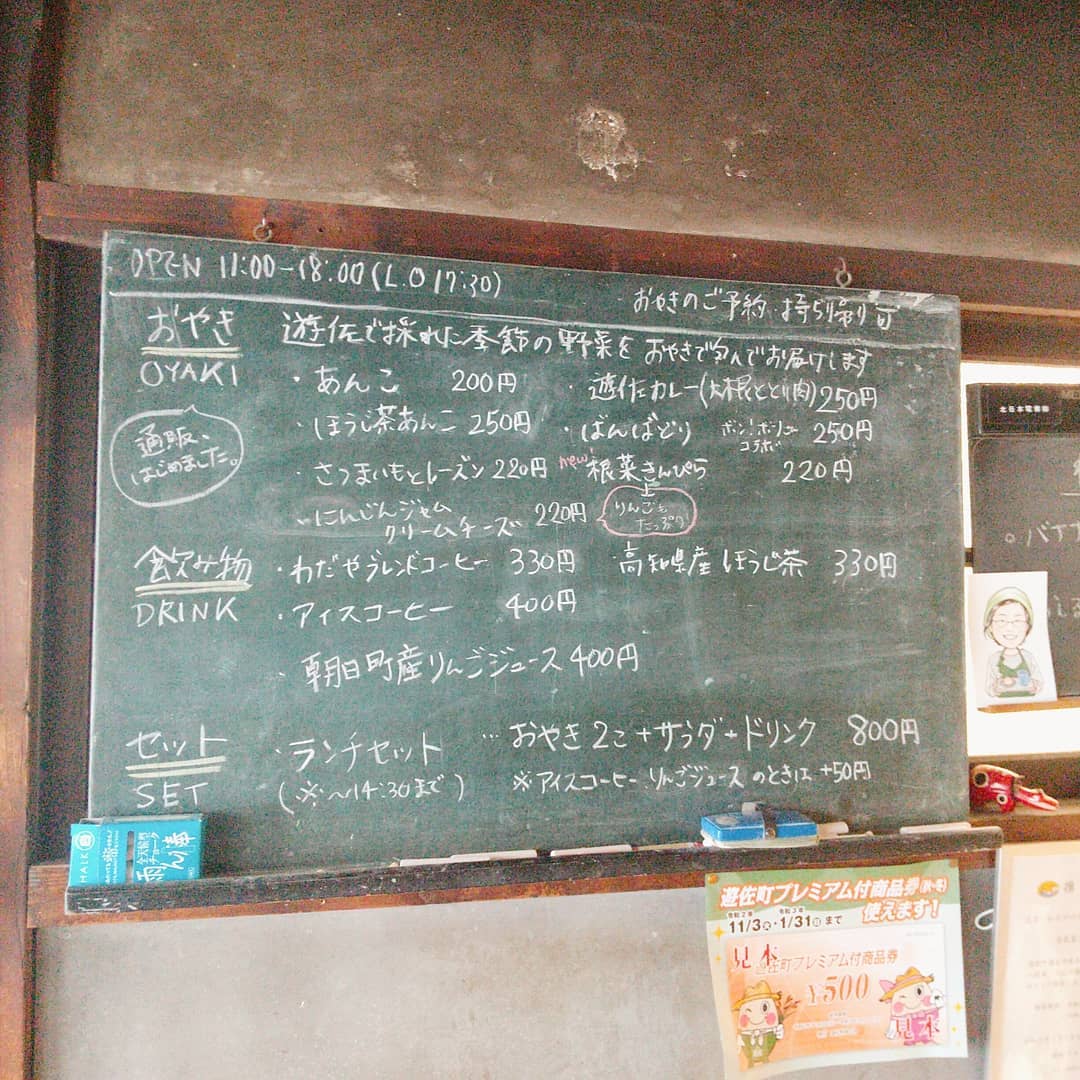 OPEN 11:00-18:00(L.O 17:30)
おやきのご予約・持ち帰り可
おやき 遊佐で採れた季節の野菜をおやきで包んでお届けします
OYAKI
・あんこ 200円
・遊佐カレー(大根ととり肉)250円
・ほうじ茶あんこ 250円
・ばんばどり
コラボ
250円
通販、
はじめました。
・さつまいもとレーズン 220円
new!
根菜きんぴら 220円
・にんじんジャム
クリームチーズ 220円
りんごも
たっぷり!
飲み物
DRINK
・わだやブレンドコーヒー 330円
・高知県産ほうじ茶 330円
・アイスコーヒー 400円
・朝日町産りんごジュース 400円
セット
SET
・ランチセット … おやき2こ+サラダ+ドリンク 800円
(※〜14:30まで)
※アイスコーヒー、りんごジュースのときは +50円
遊佐町プレミアム付商品券(秋・冬)
使えます!
令和2年 令和3年
11/3火・1/31日まで
見本
遊佐町プレミアム付商品券
¥500
見本